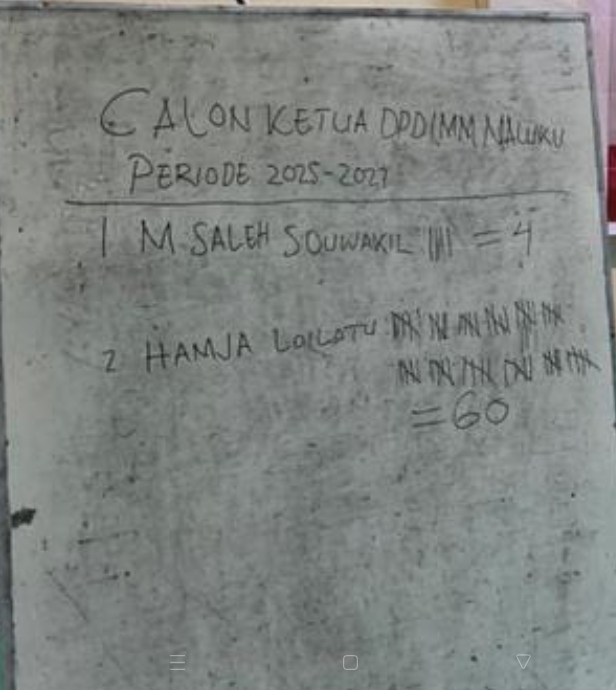 CALON KETUA DPD IMM MALUKU
PERIODE 2025-2027
1 M. SALEH SOUWAKIL |||| = 4
2 HAMJA LOILATU
= 60